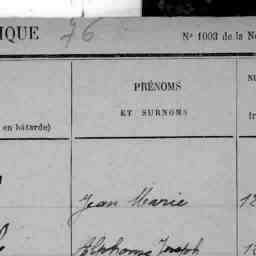 IQUE 76 N° 1003 de la No
PRÉNOMS
ET SURNOMS
en bâtarde)
Jean Marie 12
Alphonse Joseph